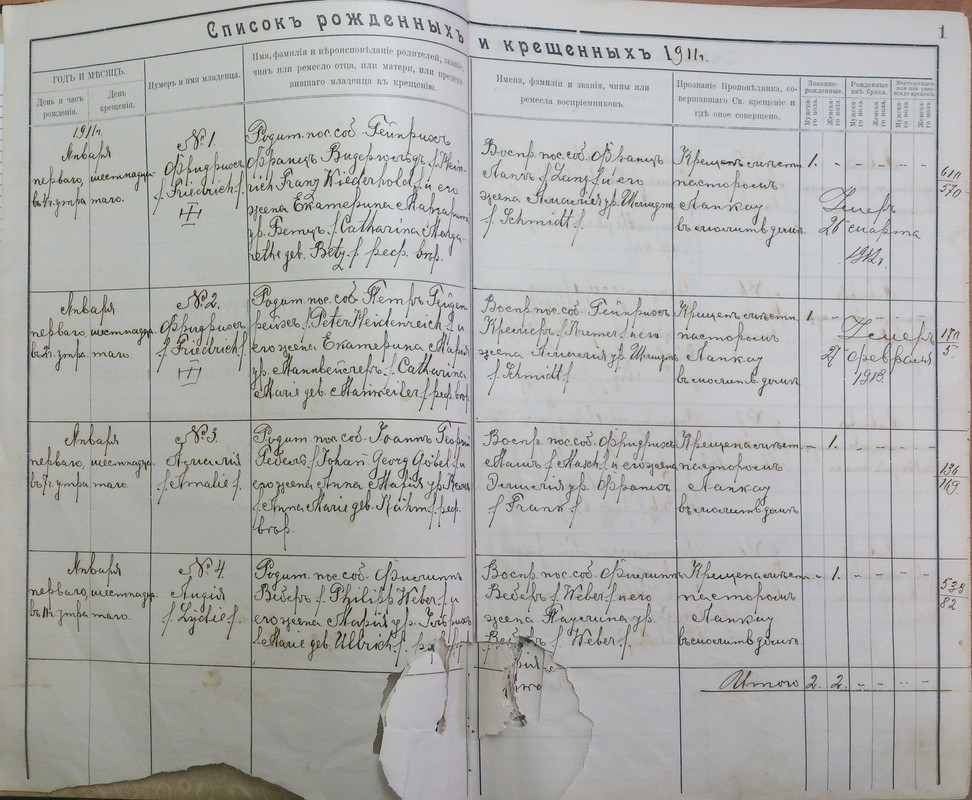 Списокъ рожденныхъ и крещенныхъ 1911г.
1
ГОДЪ И МѢСЯЦЪ.
День и часъ рожденія.
День крещенія.
Нумеръ и имя младенца.
Имя, фамилія и вѣроисповѣданіе родителей, званіе,
чинъ или ремесло отца, или матери, или предста
вившаго младенца къ крещенію.
Имена, фамиліи и званія, чины или
ремесла воспріемниковъ.
Прозваніе Проповѣдника, со-
вершавшаго Св. крещеніе и
гдѣ оное совершено.
Законно-
рожденные.
Рожденные
внѣ брака.
Мужска-
го пола.
Женска-
го пола.
Мужска-
го пола.
Женска-
го пола.
Мужска-
го пола.
Женска-
го пола.
1911г.
Января
перваго, шестнадца-
утра таго.
№ 1.
Фридрихъ
f. Friedrich f.
Родит. пос. соб. Гейнрихъ
Францъ Видергольдъ f. Hein-
rich Franz Wiederhold f. и его
жена Екатерина Маргарита
ур. Бетцъ f. Catharina Marga-
rethe geb. Betz f. реф. вѣр.
Воспр. пос. соб. Францъ
Ланцъ f. Lanz f. и его
жена Амалія ур. Шмидтъ
f. Schmidt f.
Крещенъ
пасторомъ
Лапкау
въ молитв. домѣ.
1. - - - - -
Умеръ
26 марта
1912г.
611
570
Января
перваго, шестнадца-
утра таго.
№ 2.
Фридрихъ
f. Friedrich f.
Родит. пос. соб. Петръ Гейден-
рейхъ f. Peter Heidenreich f. и
его жена Екатерина Марія
ур. Манвейлеръ f. Catharina
Marie geb. Manweiler f. реф. вѣр.
Воспр. пос. соб. Гейнрихъ
Крамеръ f. Kramer f. и его
жена Амалія ур. Шмидтъ
f. Schmidt f.
Крещенъ
пасторомъ
Лапкау
въ молитв. домѣ.
1. - - - - -
Умеръ
27 февраля
1913.
171
5
Января
перваго, шестнадца-
утра таго.
№ 3.
Амалія
f. Amalie f.
Родит. пос. соб. Іоаннъ Георгій
Гебель f. Johan Georg Göbel f. и
его жена Анна Марія ур. Кемъ
f. Anna Marie geb. Kühm f. реф.
вѣр.
Воспр. пос. соб. Фридрихъ
Машъ f. Masch f. и его жена
ур. Франкъ
f. Frank f.
Крещена
пасторомъ
Лапкау
въ молитв. домѣ
- 1. - - - -
136
169
Января
перваго, шестнадца-
утра таго.
№ 4.
Лидія
f. Lydie f.
Родит. пос. соб. Филиппъ
Веберъ f. Philipp Weber f. и
его жена Марія ур.
f. Marie geb. Ullrich f.
Воспр. пос. соб. Филиппъ
Веберъ f. Weber f. и его
жена Паулина ур.
Веберъ f. Weber f.
Крещена
пасторомъ
Лапкау
въ молитв. домѣ.
- 1. - - - -
538
82
Итого 2. 2. - - - -